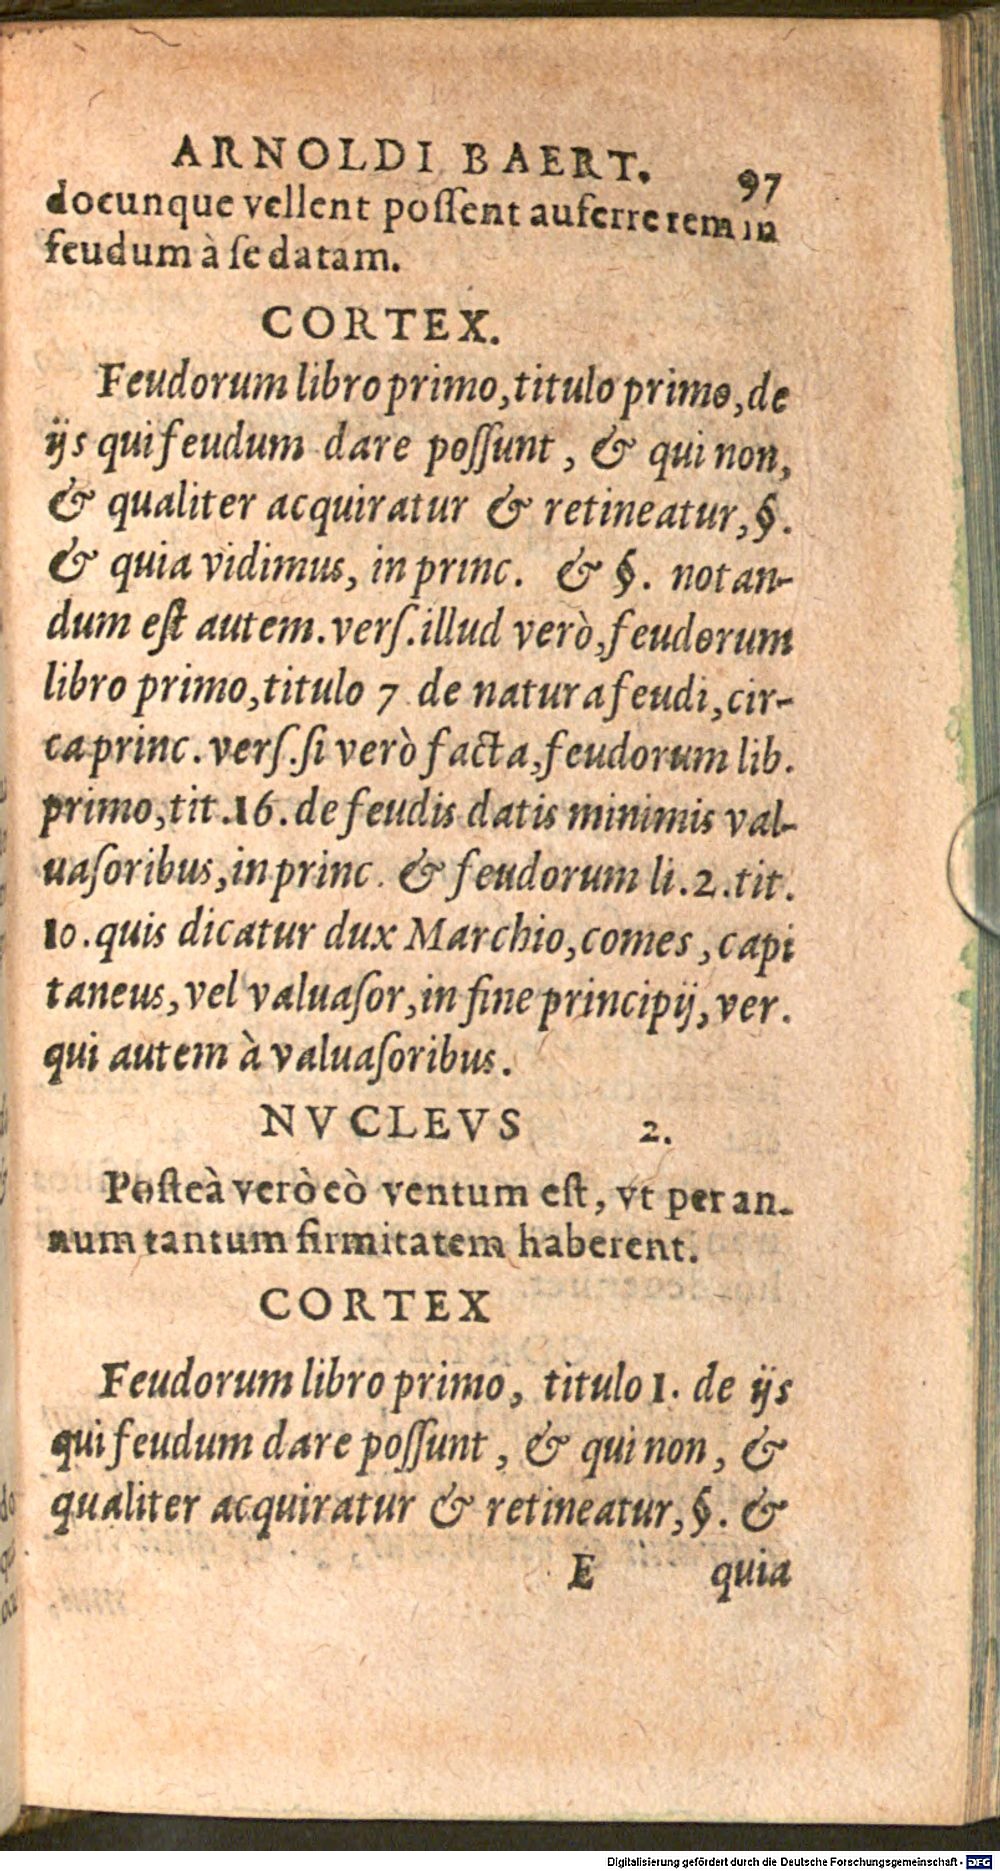 ARNOLDI BAERT. 97
docunque vellent poſſent auferre rem in
feudum à ſe datam.
CORTEX.
Feudorum libro primo, titulo primo, de
ijs qui feudum dare poſſunt, & qui non,
& qualiter acquiratur & retineatur, §.
& quia vidimus, in princ. & §. notan-
dum eſt autem. verſ. illud verò, feudorum
libro primo, titulo 7 de natura feudi, cir-
ca princ. verſ. ſi verò facta, feudorum lib.
primo, tit. 16. de feudis datis minimis val-
uaſoribus, in princ. & feudorum li. 2. tit.
10. quis dicatur dux Marchio, comes, capi
taneus, vel valuaſor, in fine principij, ver.
qui autem à valuaſoribus.
NVCLEVS 2.
Poſteà verò eò ventum eſt, vt per an-
num tantum firmitatem haberent.
CORTEX
Feudorum libro primo, titulo 1. de ijs
qui feudum dare poſſunt, & qui non, &
qualiter acquiratur & retineatur, §. &
E quia
Digitalisierung gefördert durch die Deutsche Forschungsgemeinschaft - DFG